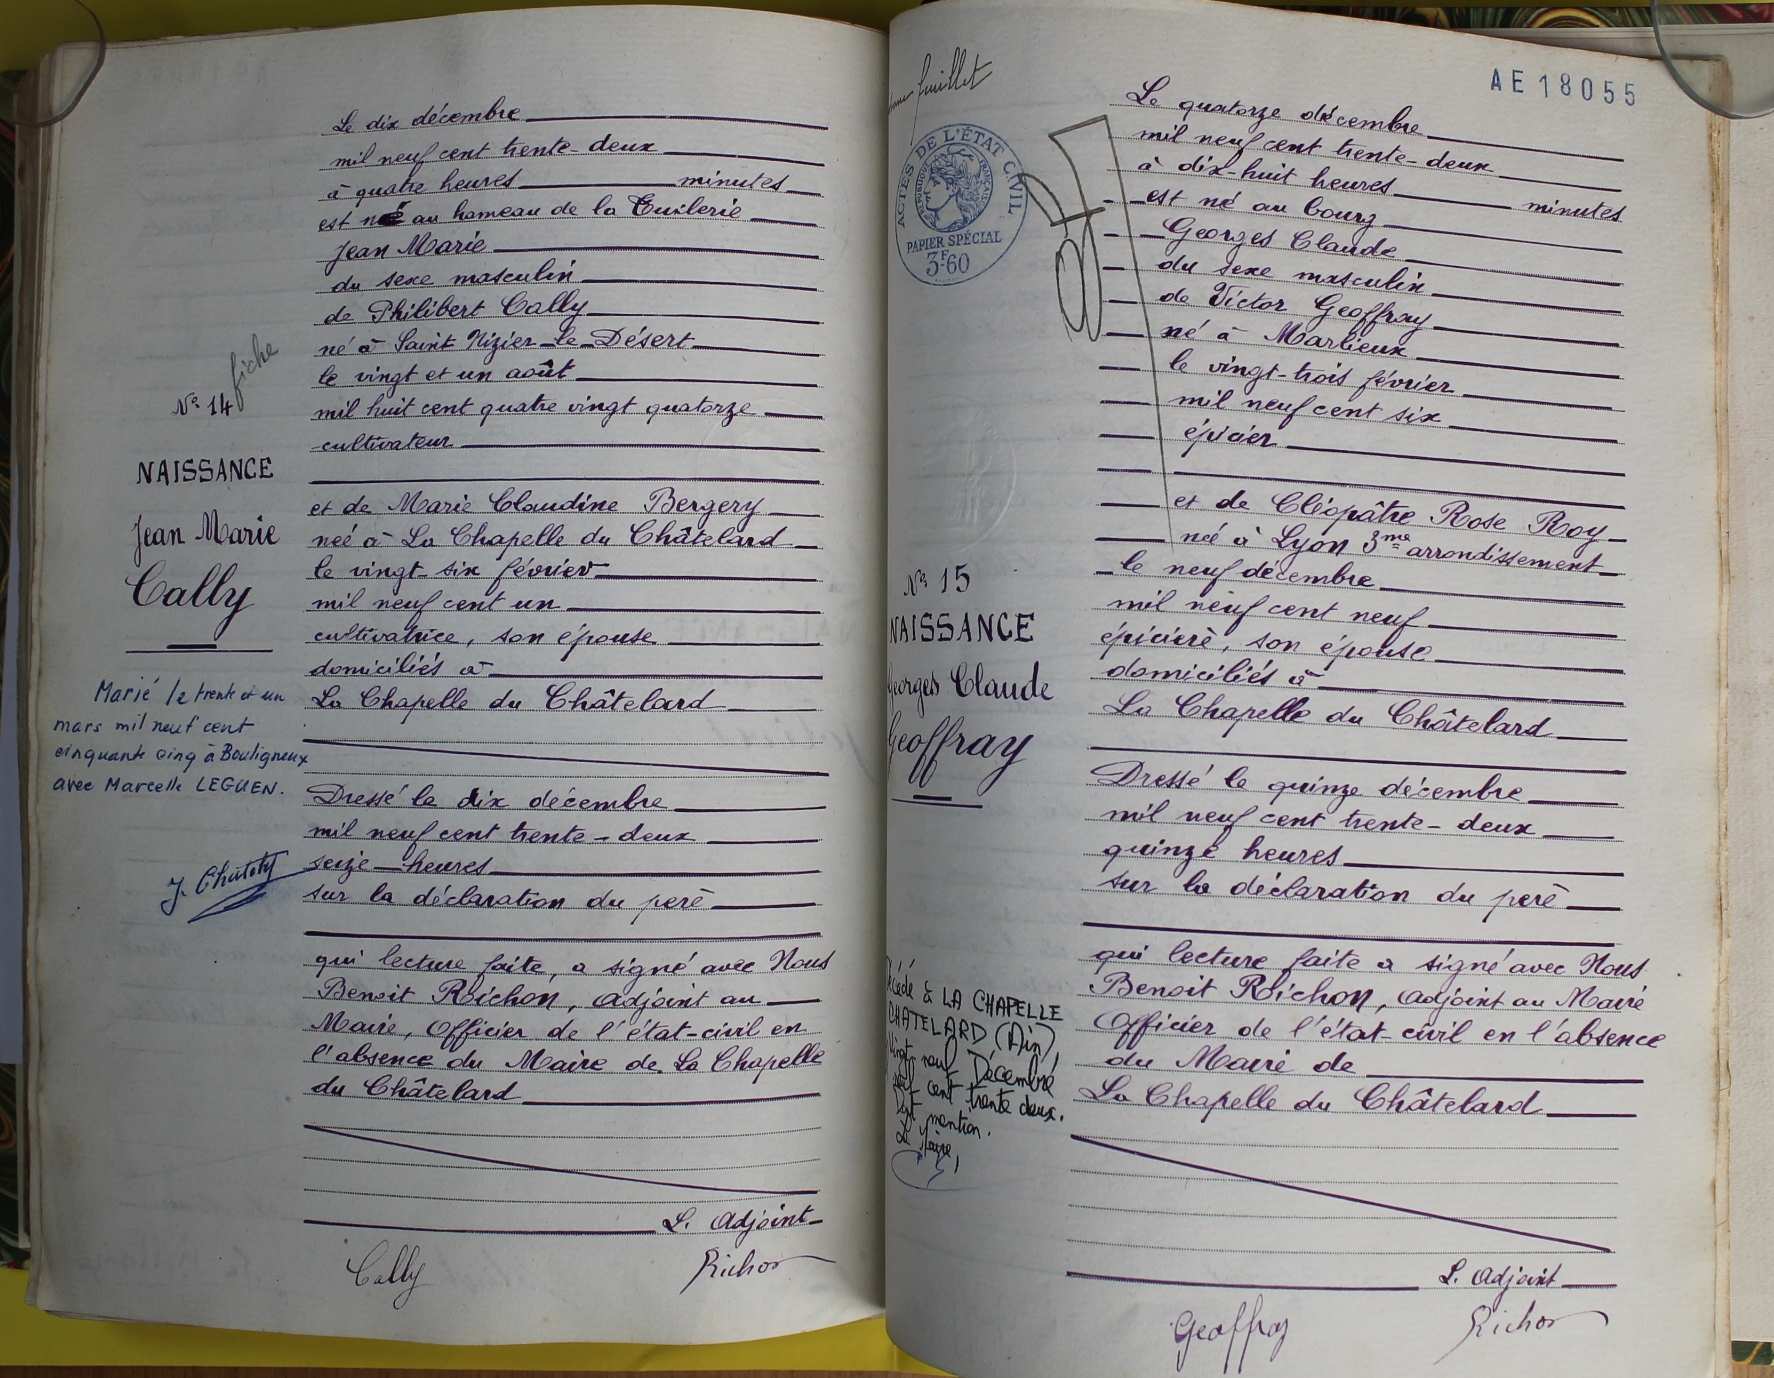 Le dix décembre
mil neuf cent trente-deux
à quatre heures minutes
est né au hameau de la Tuilerie
Jean Marie
du sexe masculin
de Philibert Cally
né à Saint Nizier-le-Désert
le vingt et un août
mil huit cent quatre vingt quatorze
cultivateur
et de Marie Claudine Bergery
née à La Chapelle du Châtelard
le vingt-six février
mil neuf cent un
cultivatrice, son épouse
domiciliés à
La Chapelle du Châtelard
Dressé le dix décembre
mil neuf cent trente-deux
seize heures
sur la déclaration du père
qui lecture faite, a signé avec Nous
Benoit Richon, adjoint au
Maire, Officier de l'état-civil en
l'absence du Maire de La Chapelle
du Châtelard
L. Adjoint
Cally
Richon
fiche
Nº 14
NAISSANCE
Jean Marie
Cally
Marié le trente et un
mars mil neuf cent
cinquante cinq à Bouligneux
avec Marcelle LEGUEN.
feuillet
AE 18055
ACTES DE L'ÉTAT CIVIL
RÉPUBLIQUE FRANÇAISE
PAPIER SPÉCIAL
3F60
Le quatorze décembre
mil neuf cent trente-deux
à dix-huit heures minutes
est né au bourg
Georges Claude
du sexe masculin
de Victor Geoffray
né à Marlieux
le vingt-trois février
mil neuf cent six
épicier
et de Cléopâtre Rose Roy
née à Lyon 3me arrondissement
le neuf décembre
mil neuf cent neuf
épicière, son épouse
domiciliés à
La Chapelle du Châtelard
Dressé le quinze décembre
mil neuf cent trente-deux
quinze heures
sur la déclaration du père
qui lecture faite a signé avec Nous
Benoit Richon, adjoint au Maire
Officier de l'état-civil en l'absence
du Maire de
La Chapelle du Châtelard
L. Adjoint
Geoffray
Richon
Nº 15
NAISSANCE
Georges Claude
Geoffray
Décédé à LA CHAPELLE
CHATELARD (Ain),
vingt neuf Décembre
neuf cent trente deux.
mention.
Le Maire,